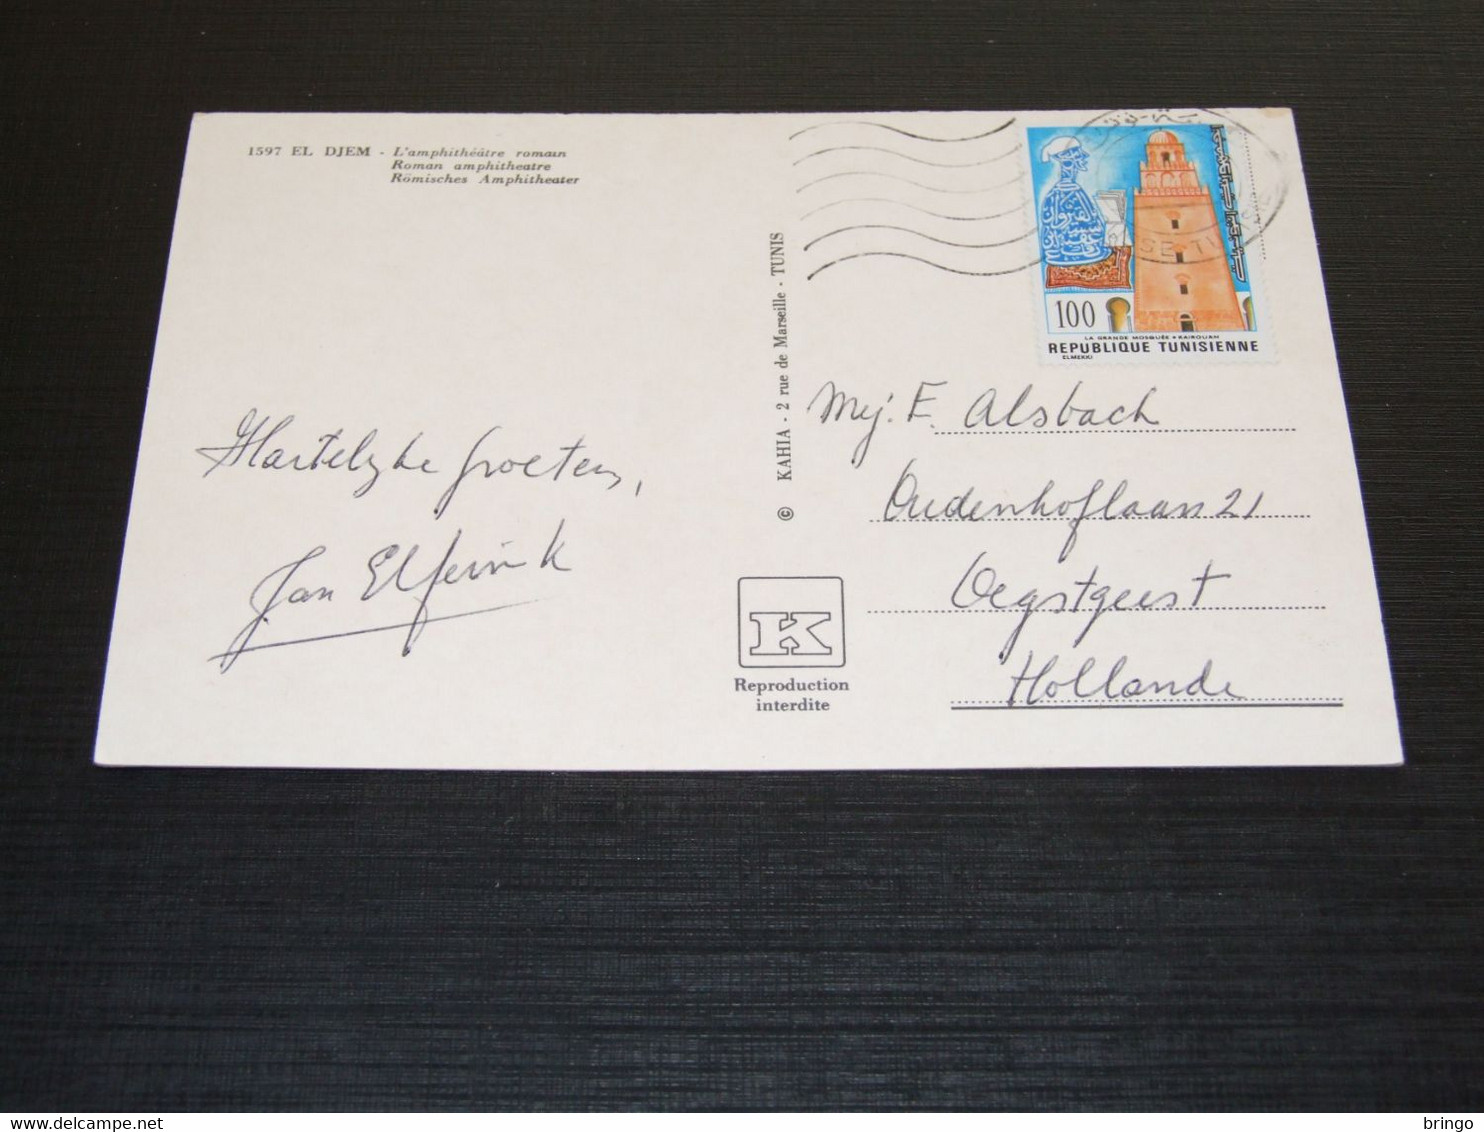 1597 EL DJEM - L'amphithéâtre romain
Roman amphitheatre
Römisches Amphitheater
Hartelyke groeten,
Jan Elferink
© KAHIA - 2 rue de Marseille - TUNIS
K
Reproduction
interdite
100
LA GRANDE MOSQUÉE • KAIROUAN
REPUBLIQUE TUNISIENNE
ELMEKKI
Mej. F. Alsbach
Oudenhoflaan 21
Oegstgeest
Hollande
bringo